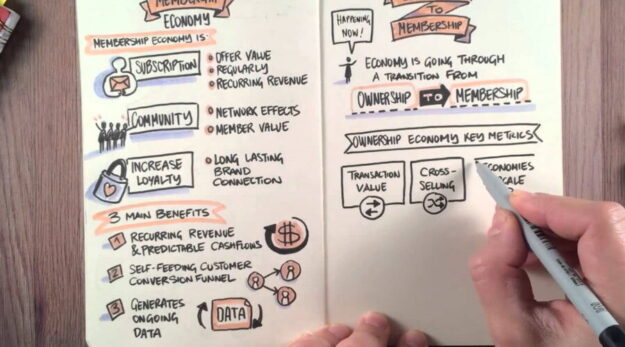 MEMBERSHIP
ECONOMY
MEMBERSHIP ECONOMY IS:
SUBSCRIPTION
OFFER VALUE
REGULARLY
RECURRING REVENUE
COMMUNITY
NETWORK EFFECTS
MEMBER VALUE
INCREASE
LOYALTY
LONG LASTING
BRAND
CONNECTION
3 MAIN BENEFITS
1 RECURRING REVENUE
& PREDICTABLE CASHFLOWS
$
2 SELF-FEEDING CUSTOMER
CONVERSION FUNNEL
3 GENERATES
ONGOING
DATA
DATA
TO
MEMBERSHIP
HAPPENING
NOW!
ECONOMY IS GOING THROUGH
A TRANSITION FROM
OWNERSHIP TO MEMBERSHIP
OWNERSHIP ECONOMY KEY METRICS
TRANSACTION
VALUE
CROSS-
SELLING